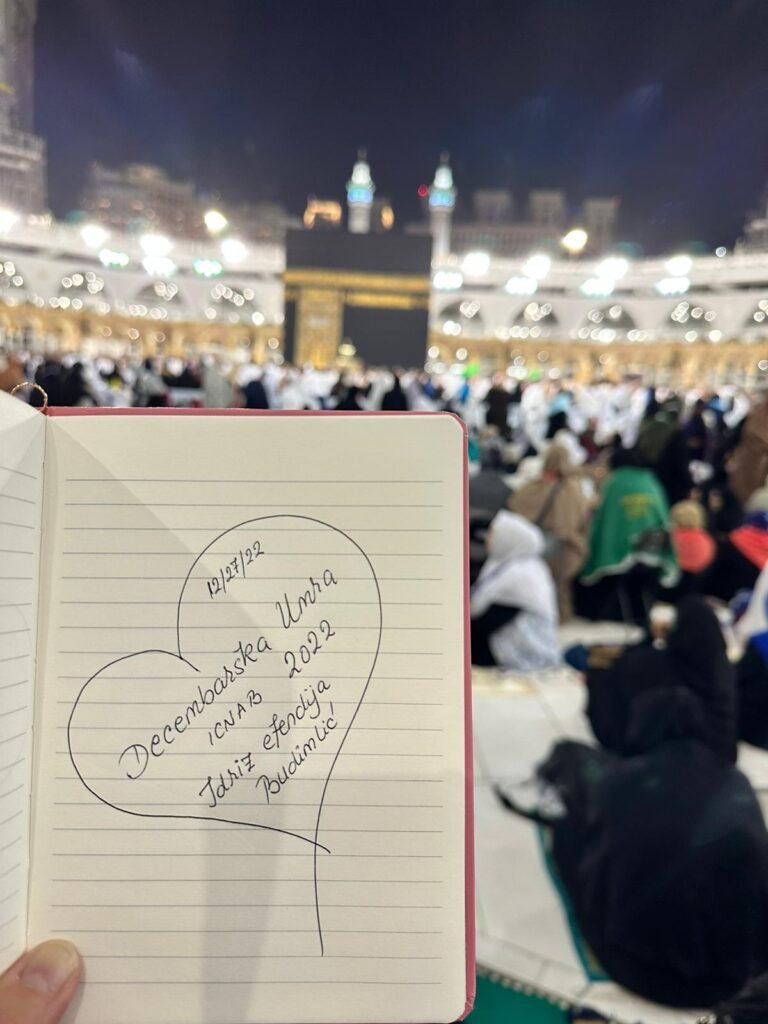 12/27/22
Decembarska Umra
ICNAB 2022
Idriz efendija
Budimlić